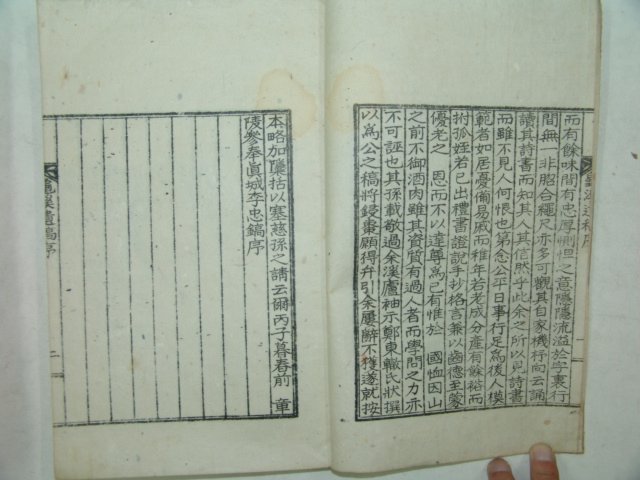 而有餘味間有忠厚惻怛之意隱隱流溢於字裏行
間無一非脗合繩尺亦多可觀其自家機杼向云誦
讀其詩書而知其人其信然乎此余之所以見詩書
而雖不見人何恨也第念公平日事行足爲後人模
範者如居憂備易戚而稚年若老成分產有餘裕而
拊孤姪若己出禮書證說手抄格言兼以齒德至蒙
優老之 恩而不以達尊爲已有惟於 國恤因山
之前不御酒肉雖其資質有過人者而學問之力亦
不可誣也其孫載敬過余溪廬袖示鄭東轍氏狀撰
以爲公之稿將鋟棗願得弁引余屢辭不獲遂就按
本略加隱括以塞慈孫之請云爾丙子暮春前 童
陵參奉眞城李忠鎬序
遺稿序 二